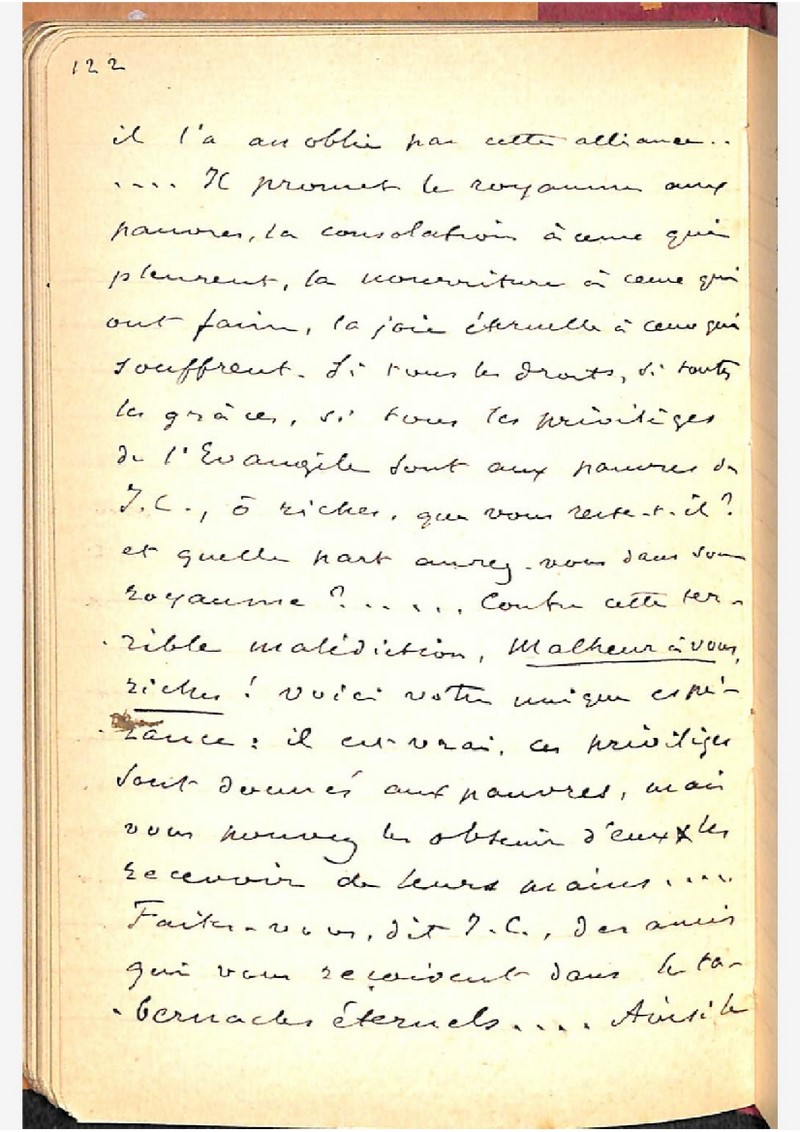 122
il l'a anoblie par cette alliance..
.... Il promet le royaume aux
pauvres, la consolation à ceux qui
pleurent, la nourriture à ceux qui
ont faim, la joie éternelle à ceux qui
souffrent. Si tous les droits, si toutes
les grâces, si tous les privilèges
de l'Evangile sont aux pauvres de
J.C., ô riches, que vous reste-t-il?
et quelle part aurez-vous dans son
royaume ?...... Contre cette ter-
rible malédiction, Malheur à vous,
riches ! voici votre unique espé-
rance : il est vrai, ces privilèges
sont donnés aux pauvres, mais
vous pouvez les obtenir d'eux & les
recevoir de leurs mains....
Faites-vous, dit J.C., des amis
qui vous reçoivent dans les ta-
bernacles éternels.... Ainsi le